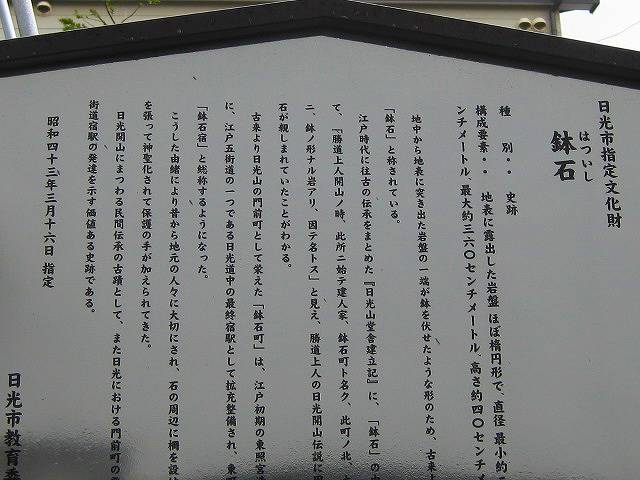 日光市指定文化財
はついし
鉢石
種　別・・　史跡
構成要素・・　地表に露出した岩盤 ほぼ楕円形で、直径 最小約
ンチメートル、最大約三六〇センチメートル、高さ約四〇センチメ
地中から地表に突き出た岩盤の一端が鉢を伏せたような形のため、古来よ
「鉢石」と称されている。
江戸時代に往古の伝承をまとめた『日光山堂舎建立記』に、「鉢石」の
て、「『勝道上人開山ノ時、此所ニ始テ建人家、鉢石町ト名ク、此町ノ北、
ニ、鉢ノ形ナル岩アリ、因テ名トス」と見え、勝道上人の日光開山伝説に
石が親しまれていたことがわかる。
古来より日光山の門前町として栄えた「鉢石町」は、江戸初期の東照宮
に、江戸五街道の一つである日光道中の最終宿駅として拡充整備され、東
「鉢石宿」と総称するようになった。
こうした由緒により昔から地元の人々に大切にされ、石の周辺に柵を設
を張って神聖化されて保護の手が加えられてきた。
日光開山にまつわる民間伝承の古蹟として、また日光における門前町の
街道宿駅の発達を示す価値ある史跡である。
昭和四十三年三月十六日 指定
日光市教育委